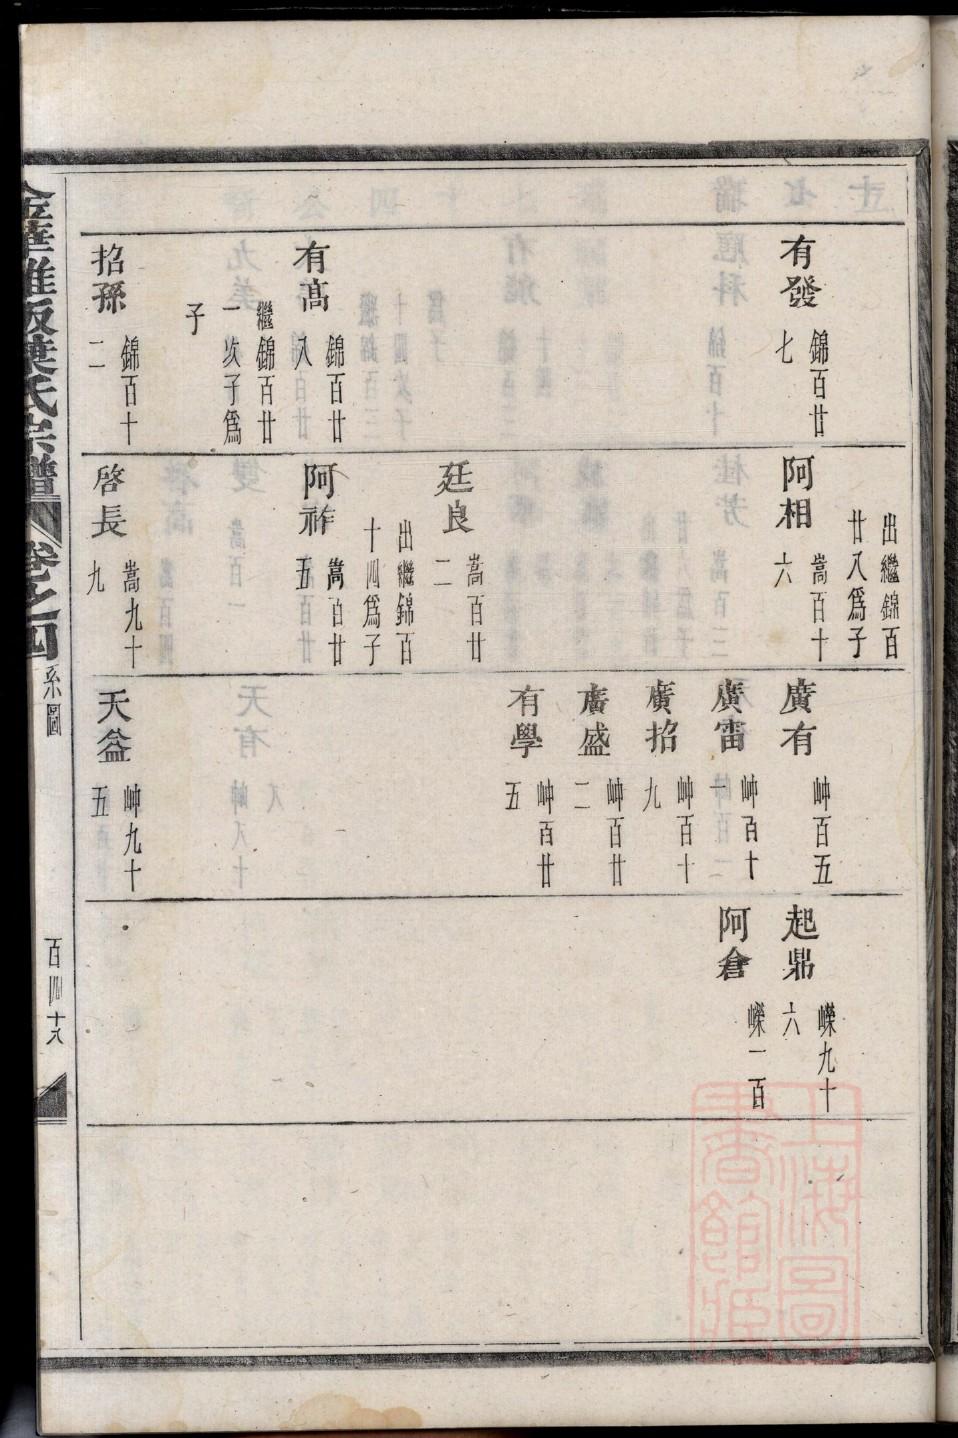 有發
錦百廿
七
有高
錦百廿
八
繼錦百廿
一次子為
子
招孫
錦百十
二
出繼錦百
廿八為子
阿相
嵩百十
六
廷良
嵩百廿
二
出繼錦百
十四為子
阿祚
嵩百廿
五
啓長
嵩九十
九
廣有
岫百五
廣雷
岫百十
一
廣招
岫百十
九
廣盛
岫百廿
二
有學
岫百廿
五
天益
岫九十
五
起鼎
嶸九十
六
阿倉
嶸一百
葉氏宗譜
卷之四
系圖
百四十八
上海圖
書館藏